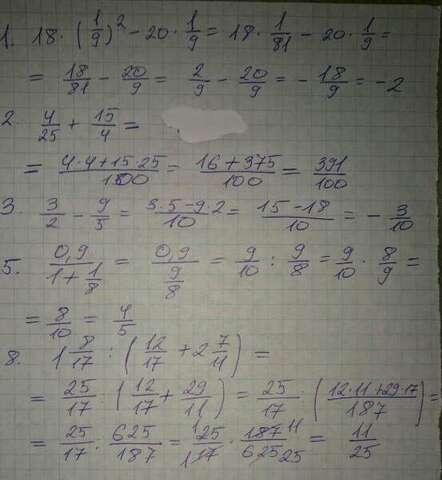 1. 18 · (1/9)² - 20 · 1/9 = 18 · 1/81 - 20 · 1/9 =
= 18/81 - 20/9 = 2/9 - 20/9 = - 18/9 = -2
2. 4/25 + 15/4 =
= (4·4+15·25)/100 = (16+375)/100 = 391/100
3. 3/2 - 9/5 = (3·5-9·2)/10 = (15-18)/10 = - 3/10
5. 0,9/(1+1/8) = 0,9/(9/8) = 9/10 : 9/8 = 9/10 · 8/9 =
= 8/10 = 4/5
8. 1 8/17 : (12/17 + 2 7/11) =
= 25/17 : (12/17 + 29/11) = 25/17 : ((12·11+29·17)/187) =
= 25/17 : 625/187 = 25/17 · 187 11/625 25 = 11/25